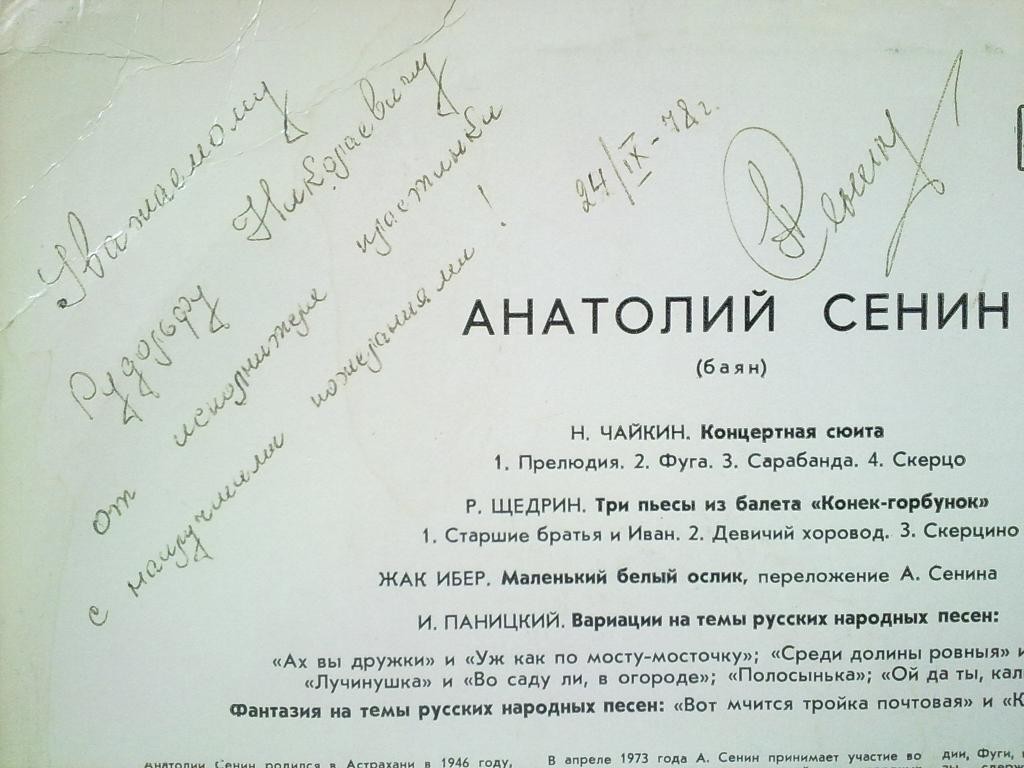 Уважаемому
Рудольфу Николаевичу
от исполнителя пластинки
с наилучшими пожеланиями!
24/IX-78г.
АСенин
АНАТОЛИЙ СЕНИН
(баян)
Н. ЧАЙКИН. Концертная сюита
1. Прелюдия. 2. Фуга. 3. Сарабанда. 4. Скерцо
Р. ЩЕДРИН. Три пьесы из балета «Конек-горбунок»
1. Старшие братья и Иван. 2. Девичий хоровод. 3. Скерцино
ЖАК ИБЕР. Маленький белый ослик, переложение А. Сенина
И. ПАНИЦКИЙ. Вариации на темы русских народных песен:
«Ах вы дружки» и «Уж как по мосту-мосточку»; «Среди долины ровныя» и
«Лучинушка» и «Во саду ли, в огороде»; «Полосынька»; «Ой да ты, кал
Фантазия на темы русских народных песен: «Вот мчится тройка почтовая» и «К
Анатолий Сенин родился в Астрахани в 1946 году,
В апреле 1973 года А. Сенин принимает участие во
дии, Фуги,